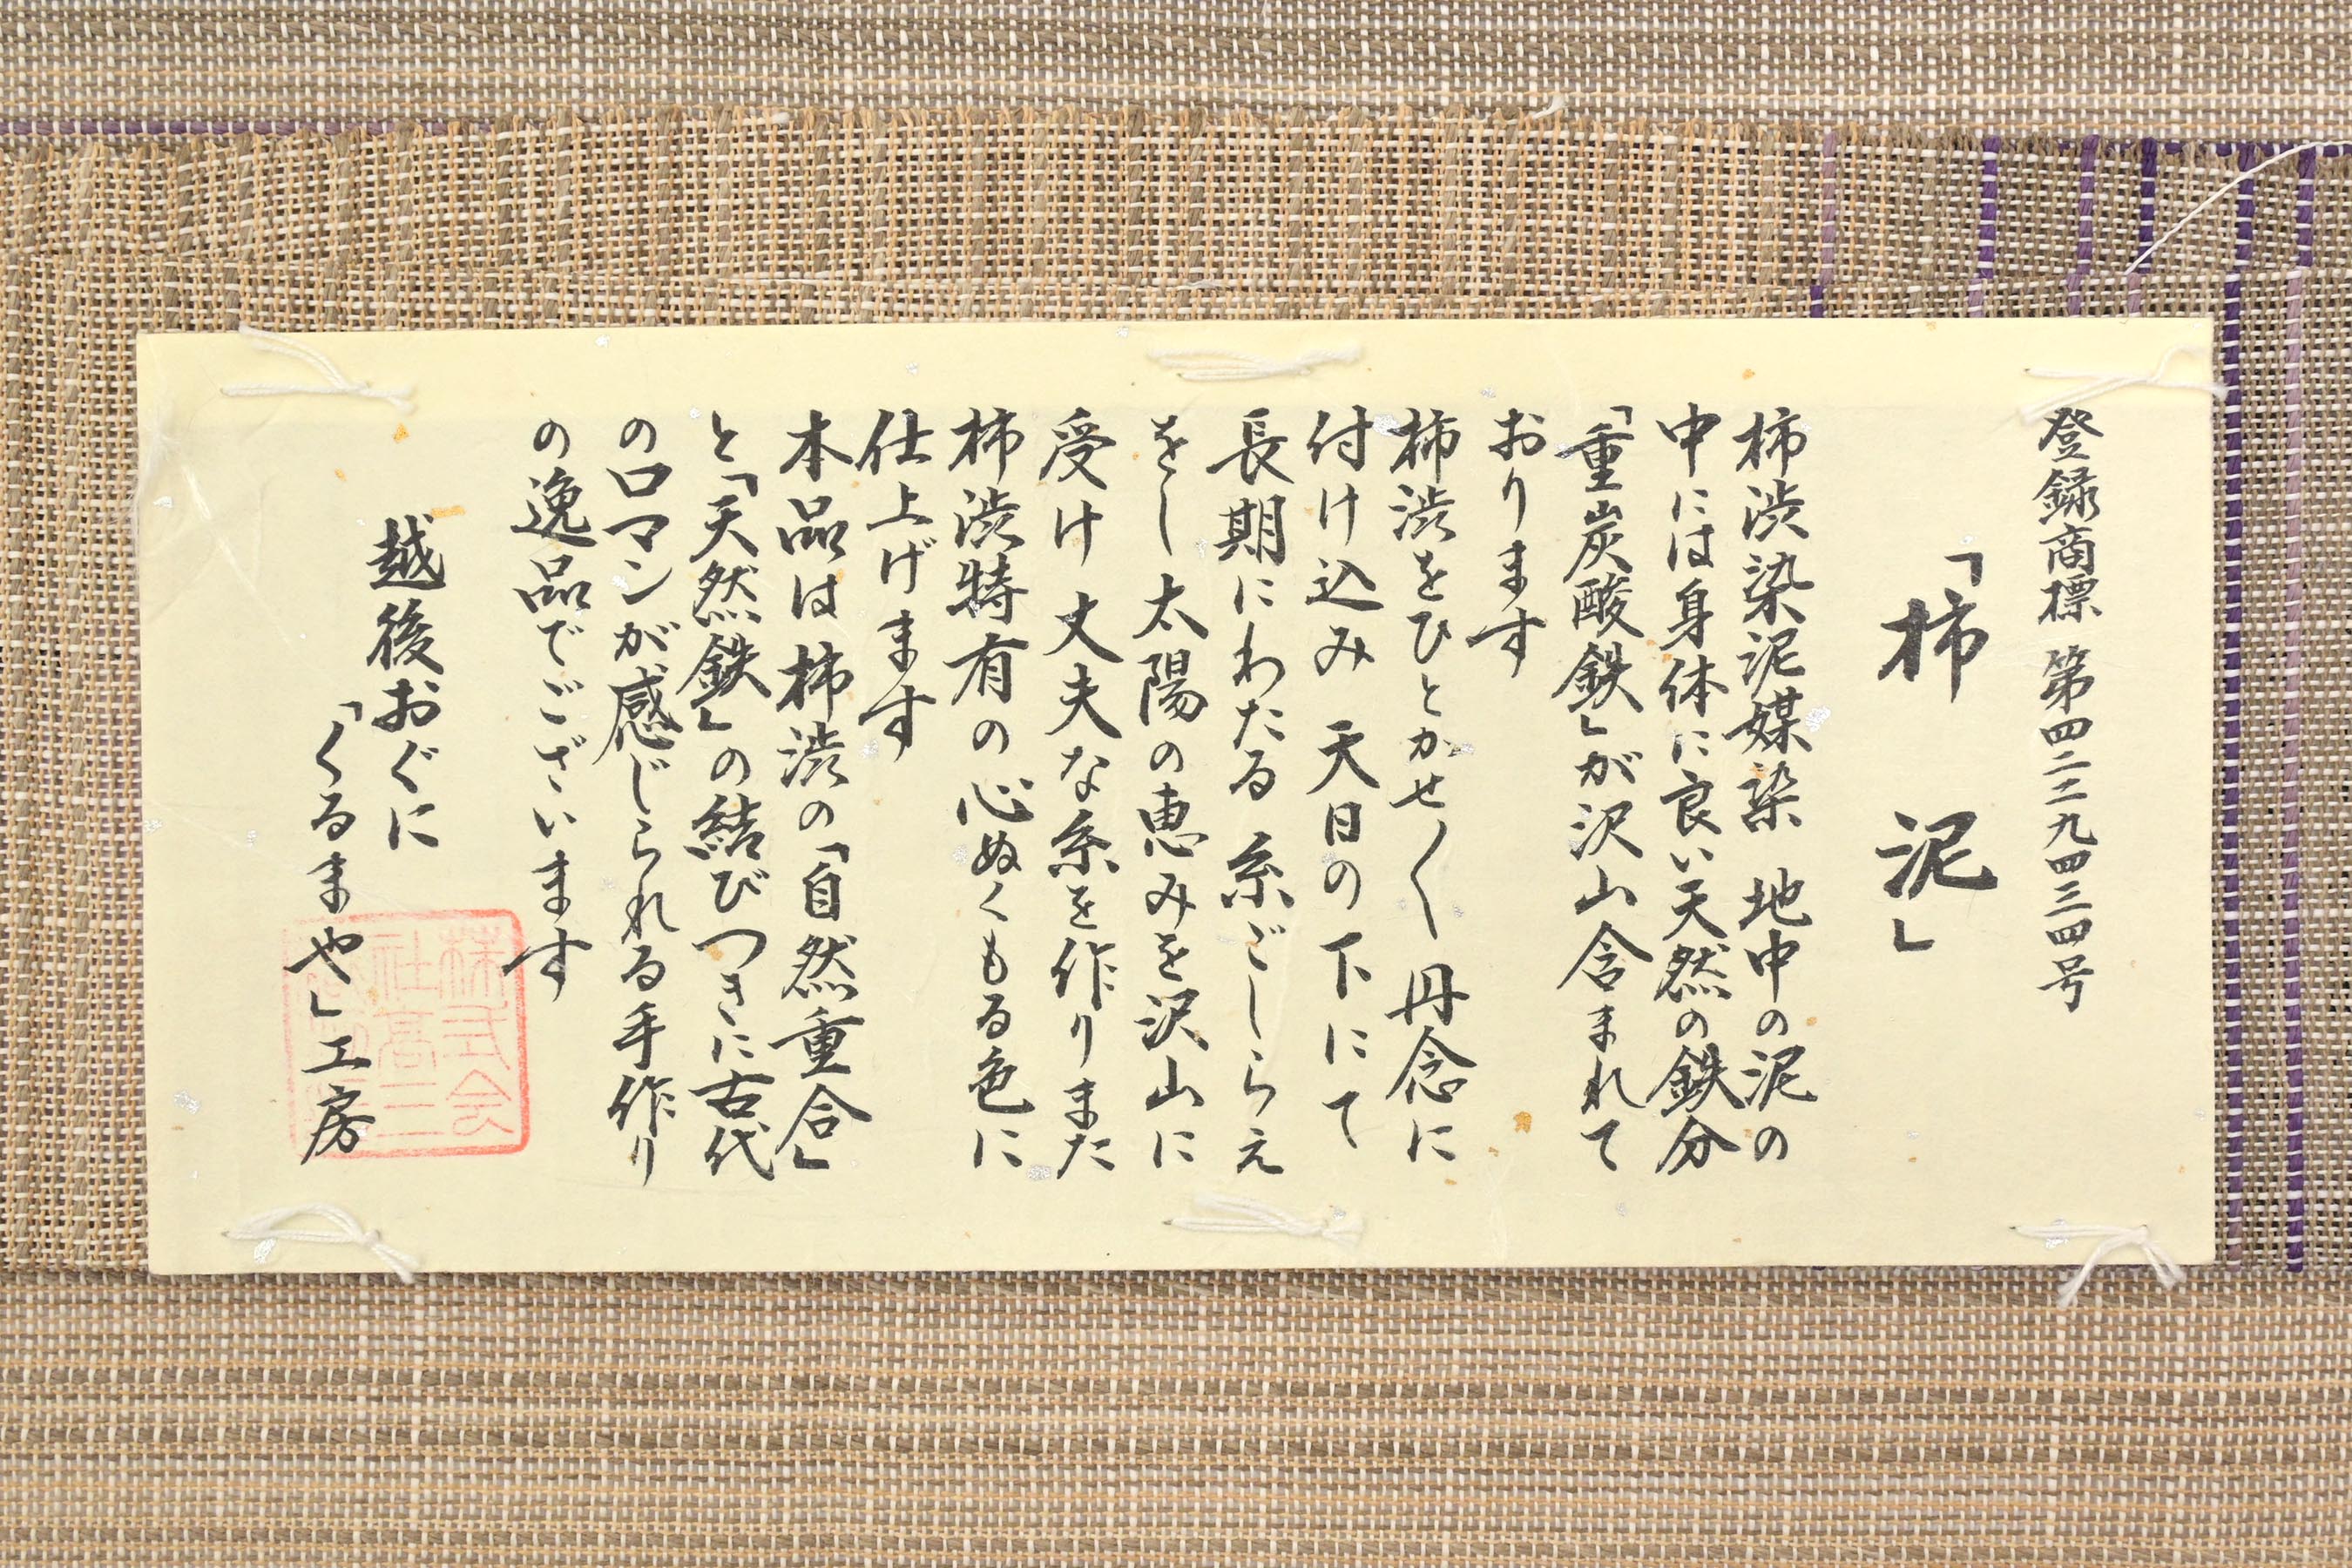 登録商標 第四二三九四三四号
「柿 泥」
柿渋染泥媒染 地中の泥の
中には身体に良い天然の鉄分
「重炭酸鉄」が沢山含まれて
おります
柿渋をひとかせ〳〵丹念に
付け込み 天日の下にて
長期にわたる糸ごしらえ
をし太陽の恵みを沢山に
受け丈夫な糸を作りまた
柿渋特有の心ぬくもる色に
仕上げます
本品は柿渋の「自然重合」
と「天然鉄」の結びつきに古代
のロマンが感じられる手作り
の逸品でございます
越後おぐに
「くるまや」工房
株式会
社高三